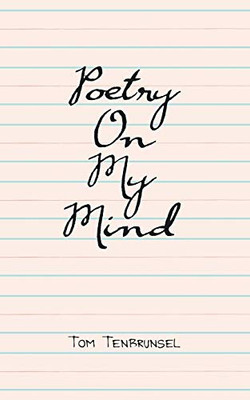 Poetry
On
My
Mind
Tom Tenbrunsel